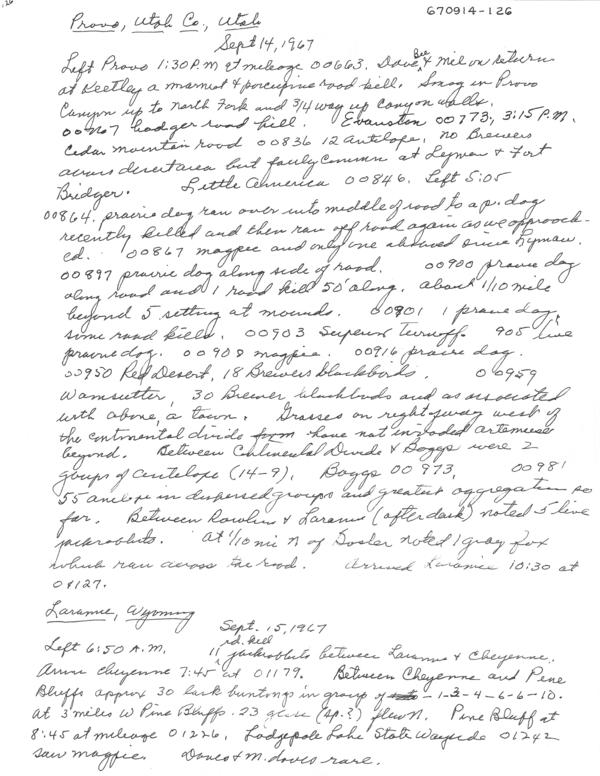 670914-126
Provo, Utah Co., Utah
Sept 14, 1967
Left Provo 1:30 P.M at mileage 00663. Dave, Bee & Mil on return
at Keetley a marmot & porcupine road kill. Smog in Provo
Canyon up to North Fork and 3/4 way up canyon walls.
00767 badger road kill. Evanston 00773, 3:15 P.M.
Cedar Mountain road 00836 12 antelope, no Brewers
across desert area but fairly common at Lyman & Fort
Bridger. Little America 00846. Left 5:05
00864, prairie dog ran over into middle of road to a p. dog
recently killed and then ran off road again as we approach-
ed. 00867 magpie and only one observed since Lyman.
00897 prairie dog along side of road. 00900 prairie dog
along road and 1 road kill 50' along. About 1/10 mile
beyond 5 setting at mounds. 00901 1 prairie dog,
some road kills. 00903 Superior Turnoff. 905 live
prairie dog. 00908 magpie. 00916 prairie dog.
00950 Red Desert, 18 Brewers blackbirds. 00959
Wamsutter, 30 Brewer blackbirds and as associated
with above, a town. Grasses on right-of-way west of
the continental divide have not invaded artemisia
beyond. Between Continental Divide & Boggs were 2
groups of antelope (14-9). Boggs 00973, 00981
55 antelope in dispersed groups and greatest aggregation so
far. Between Rawlins & Laramie (after dark) noted 5 live
jackrabbits. At 1/10 mi N of Bosler noted 1 gray fox
which ran across the road. Arrived Laramie 10:30 at
01127.
Laramie, Wyoming
Sept. 15, 1967
Left 6:50 A.M. 11 rd. kill jackrabbits between Laramie & Cheyenne.
Arrive Cheyenne 7:45 at 01179. Between Cheyenne and Pine
Bluffs approx 30 lark buntings in group of 1-3-4-6-6-10.
At 3 miles W Pine Bluffs. 23 geese (sp.?) flew N. Pine Bluff at
8:45 at mileage 01226. Lodgepole Lake State Wayside 01242
saw magpie. Doves & M. doves rare.